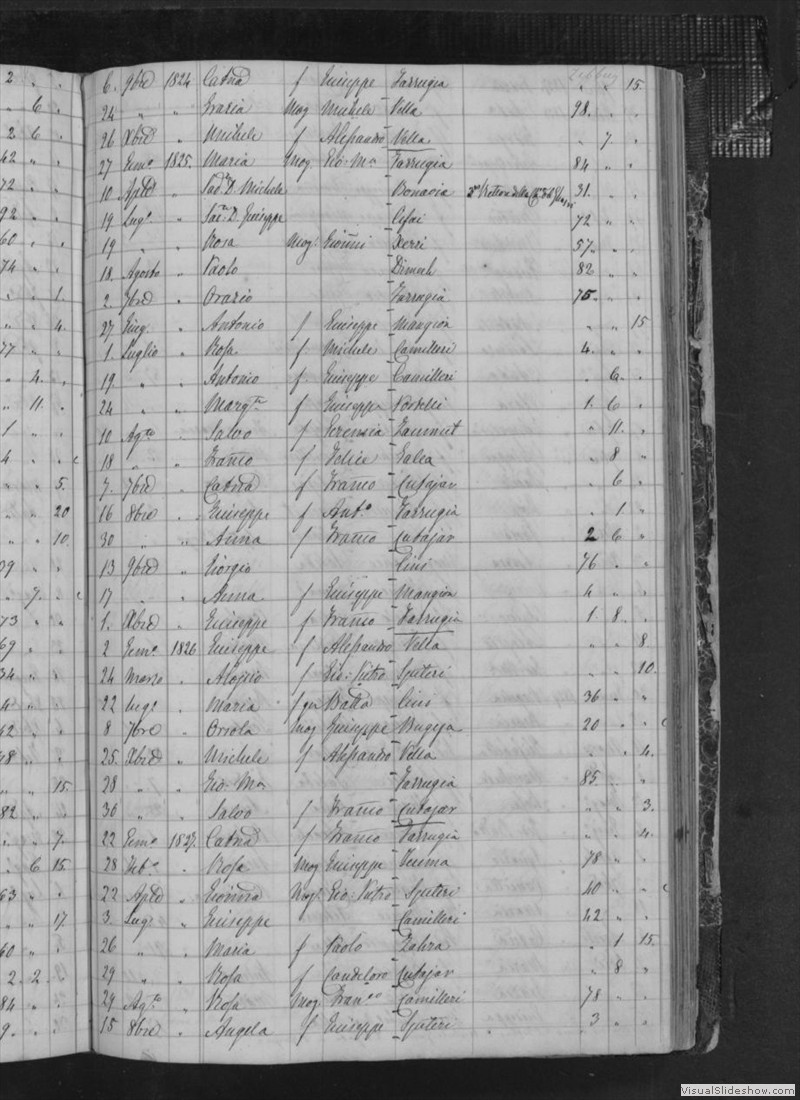 Zebbug
6. 9bre 1824 Catna f Giuseppe Farrugia " " 15.
24 " " Grazia mog Michele Vella 98. " "
26 Xbre " Michele f Alessandro Vella " 7. "
27 Genno 1825. Maria mog. Gio: Ma Farrugia 84 " "
10 Aple " Sac. D. Michele Bonavia 31. " "
19 Lugo " Sac. D. Giuseppe Cefai 72 " "
19 " " Rosa Mog. Gionni Xerri 57 " "
18. Agosto " Paolo Dimech 82 " "
2. 7bre " Orazio Farrugia 75. " "
27 Giug. " Antonio f Giuseppe Mangion " " 15
1. Luglio " Rosa f Michele Camilleri 4. " "
19. " " Antonio f Giuseppe Camilleri " 6. "
24 " " Margta f Giuseppe Portelli 1. 6 "
10 Agto " Salvo f Terensia Zammit " 11. "
18 " " Franco f Felice Galea " 8 "
7. 7bre " Catna f Franco Cutajar " 6 "
16 8bre " Giuseppe f Anto Farrugia " 1 "
30 " " Anna f Franco Cutajar 2 6 "
13 9bre " Giorgio Cini 76 " "
17 " " Anna f Giuseppe Mangion 4 " "
1. Xbre " Giuseppe f Franco Farrugia 1 8 "
2 Genno 1826 Giuseppe f Alessandro Vella " " 8
24 Marzo " Alojsio f Gio: Pietro Spiteri " " 10.
22 Lugo " Maria f Batta Cini 36 " "
8 7bre " Orsola mog Giuseppe Bugeja 20 " "
25. Xbre " Michele f Alessandro Vella " " 4.
28 " " Gio: Ma Farrugia 85. " "
30 " " Salvo f Franco Cutajar " " 3.
22 Genno 1827. Catna f Franco Farrugia " " 4
28 Febo " Rosa mog Giuseppe 78 " "
22 Aple " Gionna mog. Gio: Pietro Spiteri 40 " "
3. Lugo " Giuseppe Camilleri 42 " "
26 " " Maria f Paolo Zahra " 1 15.
29 " " Rosa f Candeloro Cutajar " 8 "
29 Agto " Rosa mog Franco Camilleri 78 " "
15 8bre " Angela f Giuseppe Spiteri " 3 " "
VisualSlideshow.com